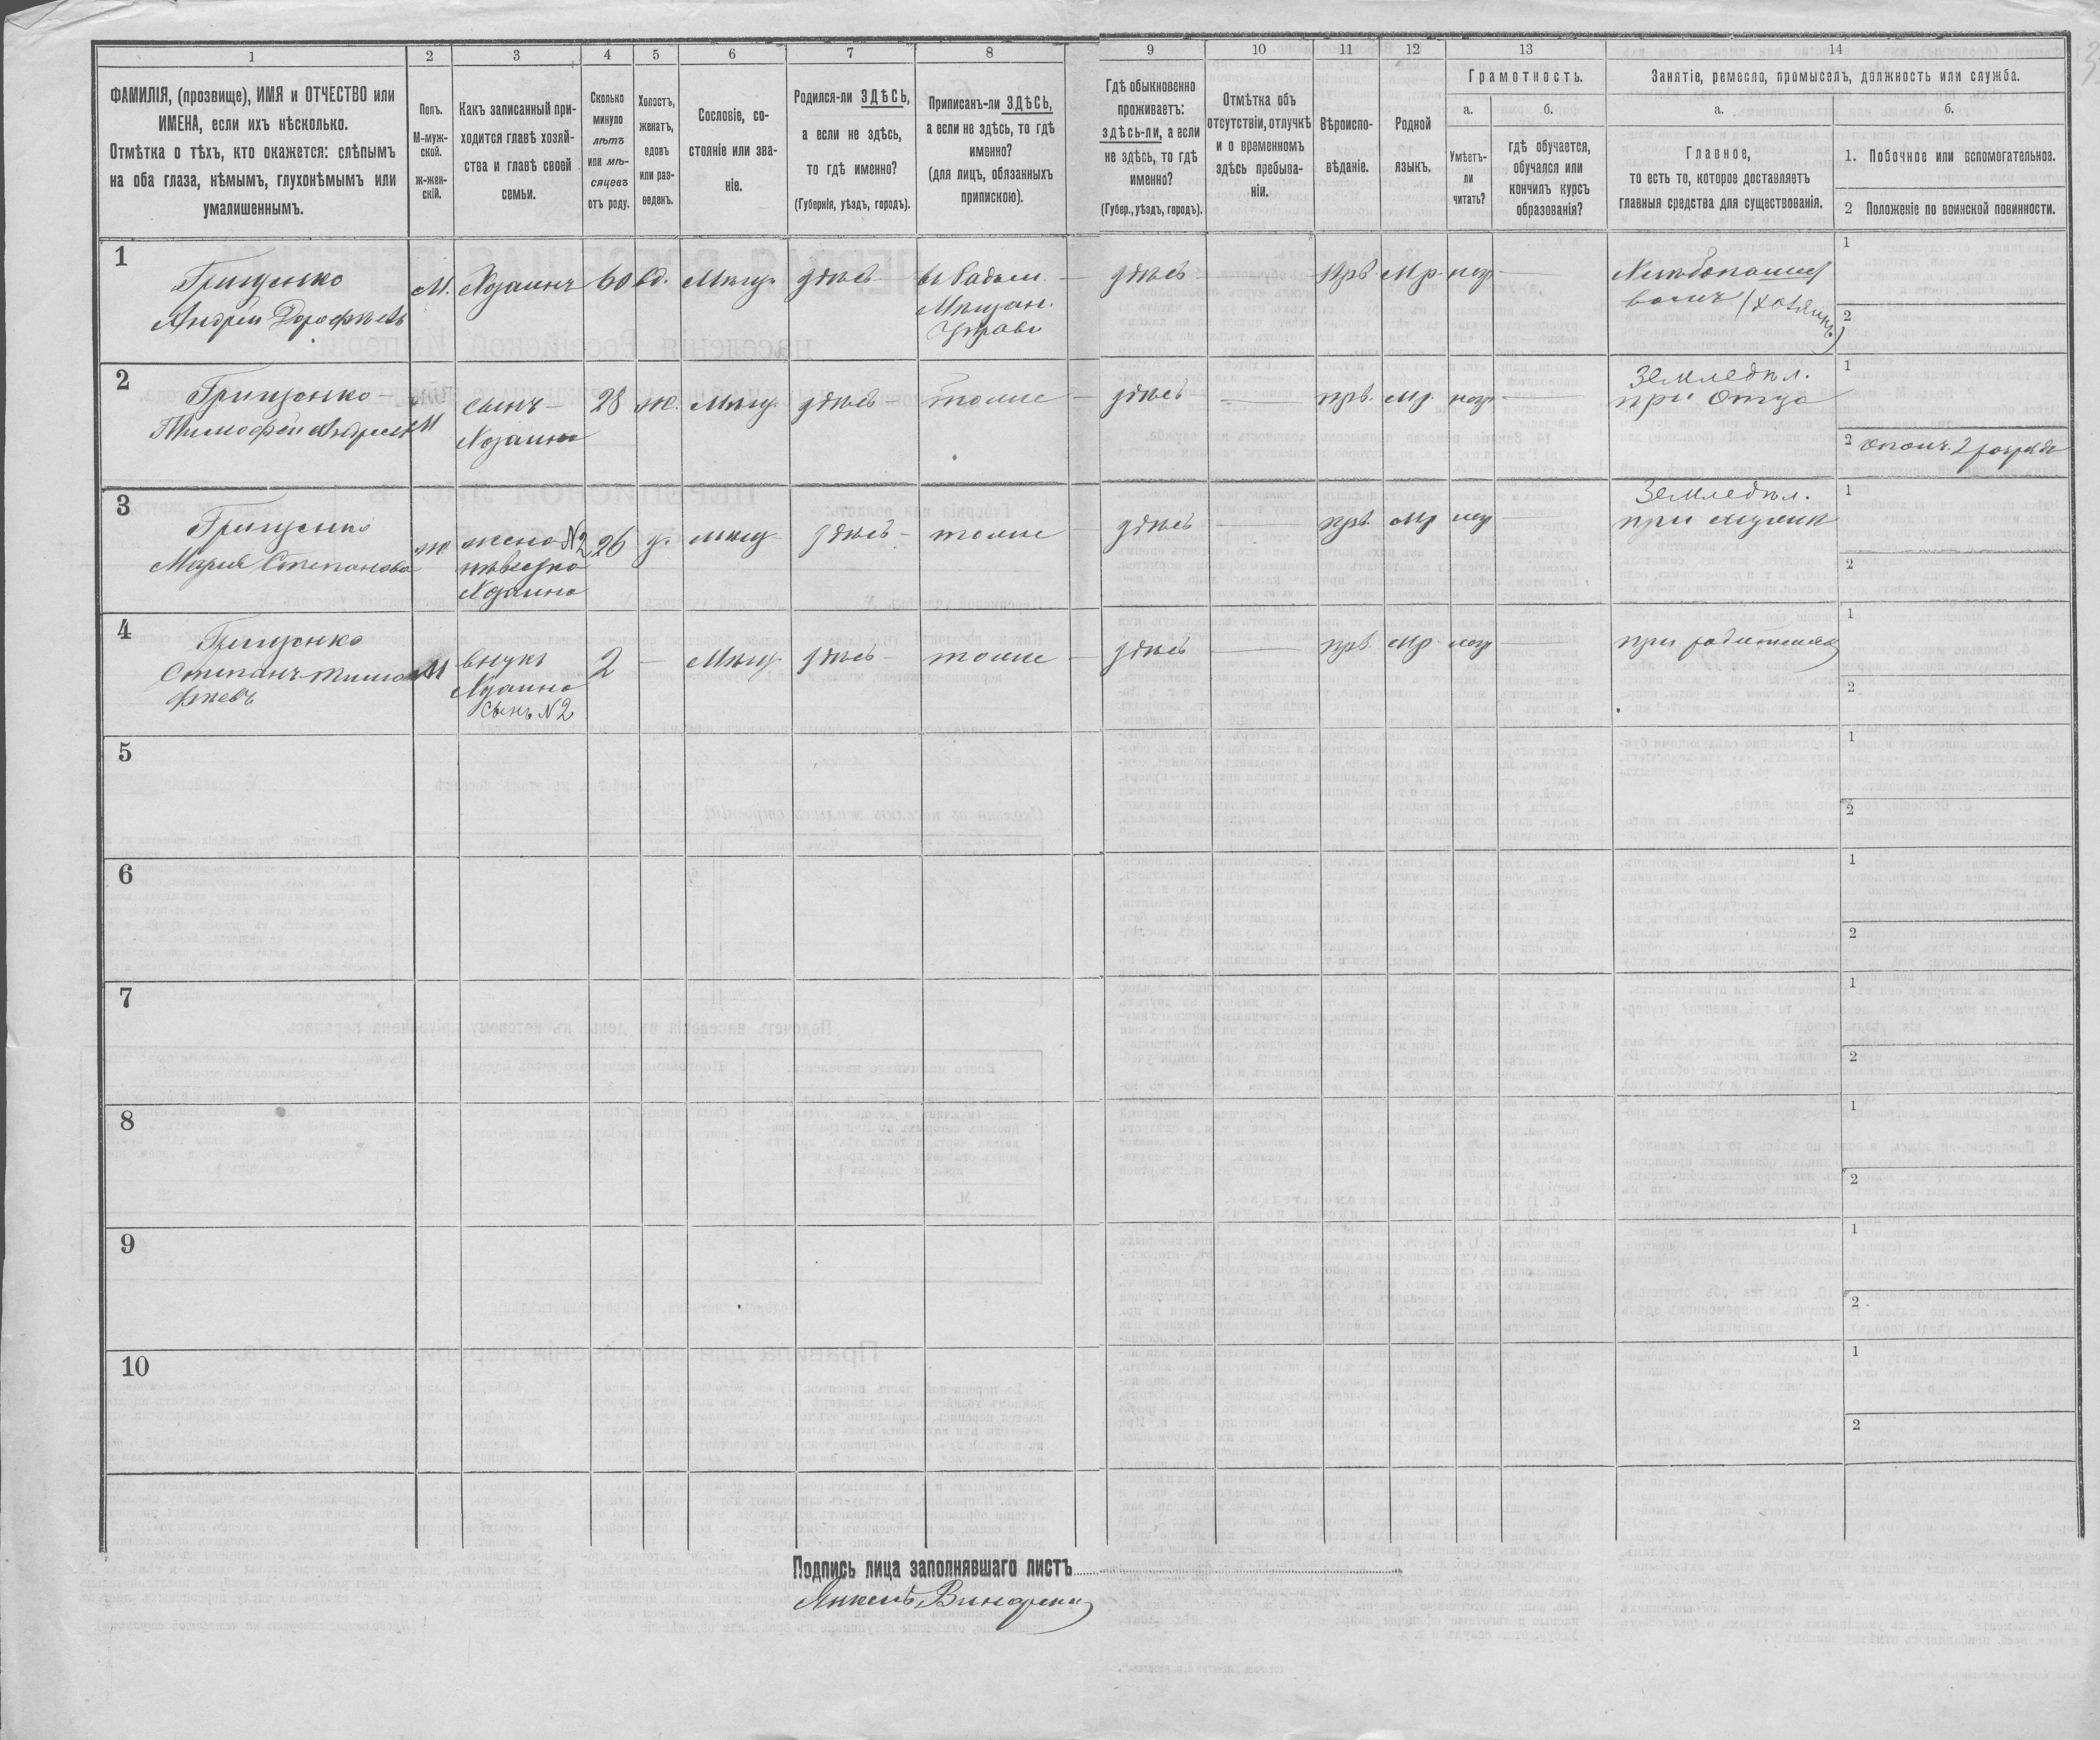 1 2 3 4 5 6 7 8 9 10 11 12 13 14
ФАМИЛІЯ, (прозвище), ИМЯ и ОТЧЕСТВО или
ИМЕНА, если ихъ нѣсколько.
Отмѣтка о тѣхъ, кто окажется: слѣпымъ
на оба глаза, нѣмымъ, глухонѣмымъ или
умалишеннымъ.
Полъ.
М-муж-
ской.
ж-жен-
скій.
Какъ записанный при-
ходится главѣ хозяй-
ства и главѣ своей
семьи.
Сколько
минуло
лѣтъ
или мѣ-
сяцевъ
отъ роду.
Холостъ,
женатъ,
вдовъ
или раз-
веденъ.
Сословіе, со-
стояніе или зва-
ніе.
Родился-ли ЗДѢСЬ,
а если не здѣсь,
то гдѣ именно?
(Губернія, уѣздъ, городъ).
Приписанъ-ли ЗДѢСЬ,
а если не здѣсь, то гдѣ
именно?
(для лицъ, обязанныхъ
припискою).
Гдѣ обыкновенно
проживаетъ:
здѣсь-ли, а если
не здѣсь, то гдѣ
именно?
(Губер., уѣздъ, городъ).
Отмѣтка объ
отсутствіи, отлучкѣ
и о временномъ
здѣсь пребыва-
ніи.
Вѣроиспо-
вѣданіе.
Родной
языкъ.
Грамотность.
а.
Умѣетъ-
ли
читать?
б.
гдѣ обучается,
обучался или
кончилъ курсъ
образованія?
Занятіе, ремесло, промыселъ, должность или служба.
а.
Главное,
то есть то, которое доставляетъ
главныя средства для существованія.
б.
1. Побочное или вспомогательное.
2 Положеніе по воинской повинности.
1
Грищенко
Андрей Дорофѣевъ
М.
Хозяинъ
60
вд.
Мѣщ.
здѣсь
въ Радом.
Мѣщан.
Управѣ
здѣсь
Прв.
Мр.
негр.
Хлѣбопаше
(хозяинъ)
1
2
2
Грищенко
Тимофей Андреевъ
М
сынъ
Хозяина
28
ж.
Мѣщ.
здѣсь
тоже
здѣсь
прв.
Мр.
негр.
Земледѣл.
при Отцѣ
1
2 Ополч. 2 разряда
3
Грищенко
Марія Степанова
ж
жена N2
невѣстка
Хозяина
26
з.
мѣщ.
здѣсь
тоже
здѣсь
прв.
Мр
негр
Земледѣл.
при мужѣ
1
2
4
Грищенко
Степанъ Тимо
фѣевъ
М
внукъ
Хозяина
сынъ N2
2
Мѣщ.
здѣсь
тоже
здѣсь
прв.
Мр
негр
при родителяхъ
1
2
5
1
2
6
1
2
7
1
2
8
1
2
9
1
2
10
1
2
Подпись лица заполнявшаго листъ